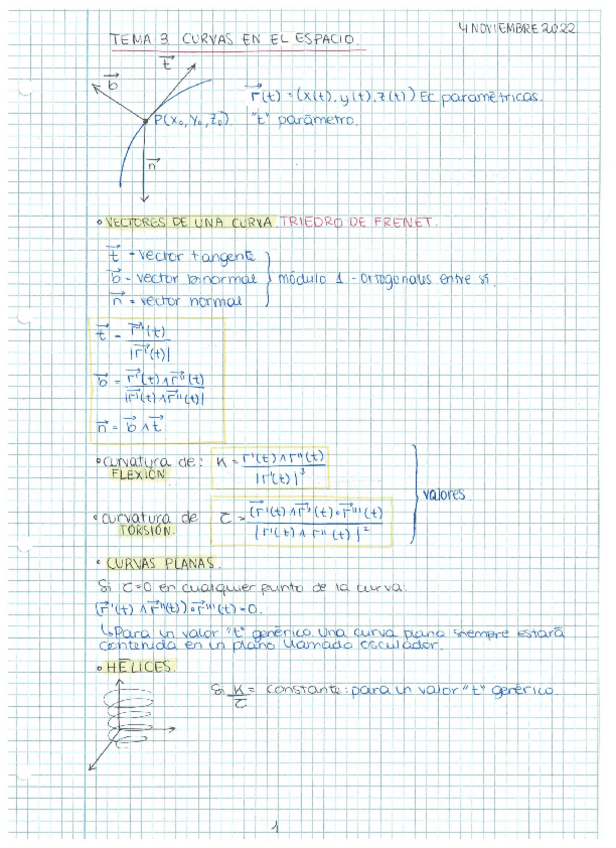 4 NOVIEMBRE 2022
TEMA 3. CURVAS EN EL ESPACIO.
t
b
r(t) = (x(t), y(t), z(t)) Ec paramétricas.
P(X₀, Y₀, Z₀). "t" parámetro.
n
• VECTORES DE UNA CURVA. TRIEDRO DE FRENET.
t = vector tangente
b = vector binormal } módulo 1 - ortogonales entre sí.
n = vector normal
t = r'(t) / |r'(t)|
b = r'(t) ∧ r''(t) / |r'(t) ∧ r''(t)|
n = b ∧ t
• curvatura de: K = r'(t) ∧ r''(t) / |r'(t)|³
FLEXIÓN
valores
• curvatura de τ = (r'(t) ∧ r''(t) • r'''(t) / |r'(t) ∧ r''(t)|²
TORSIÓN.
• CURVAS PLANAS.
Si τ=0 en cualquier punto de la curva.
(r'(t) ∧ r''(t)) • r'''(t) = 0.
↳ Para un valor "t" genérico. Una curva plana siempre estará
contenida en un plano llamado osculador.
• HÉLICES.
Si K/τ = constante: para un valor "t" genérico.
1